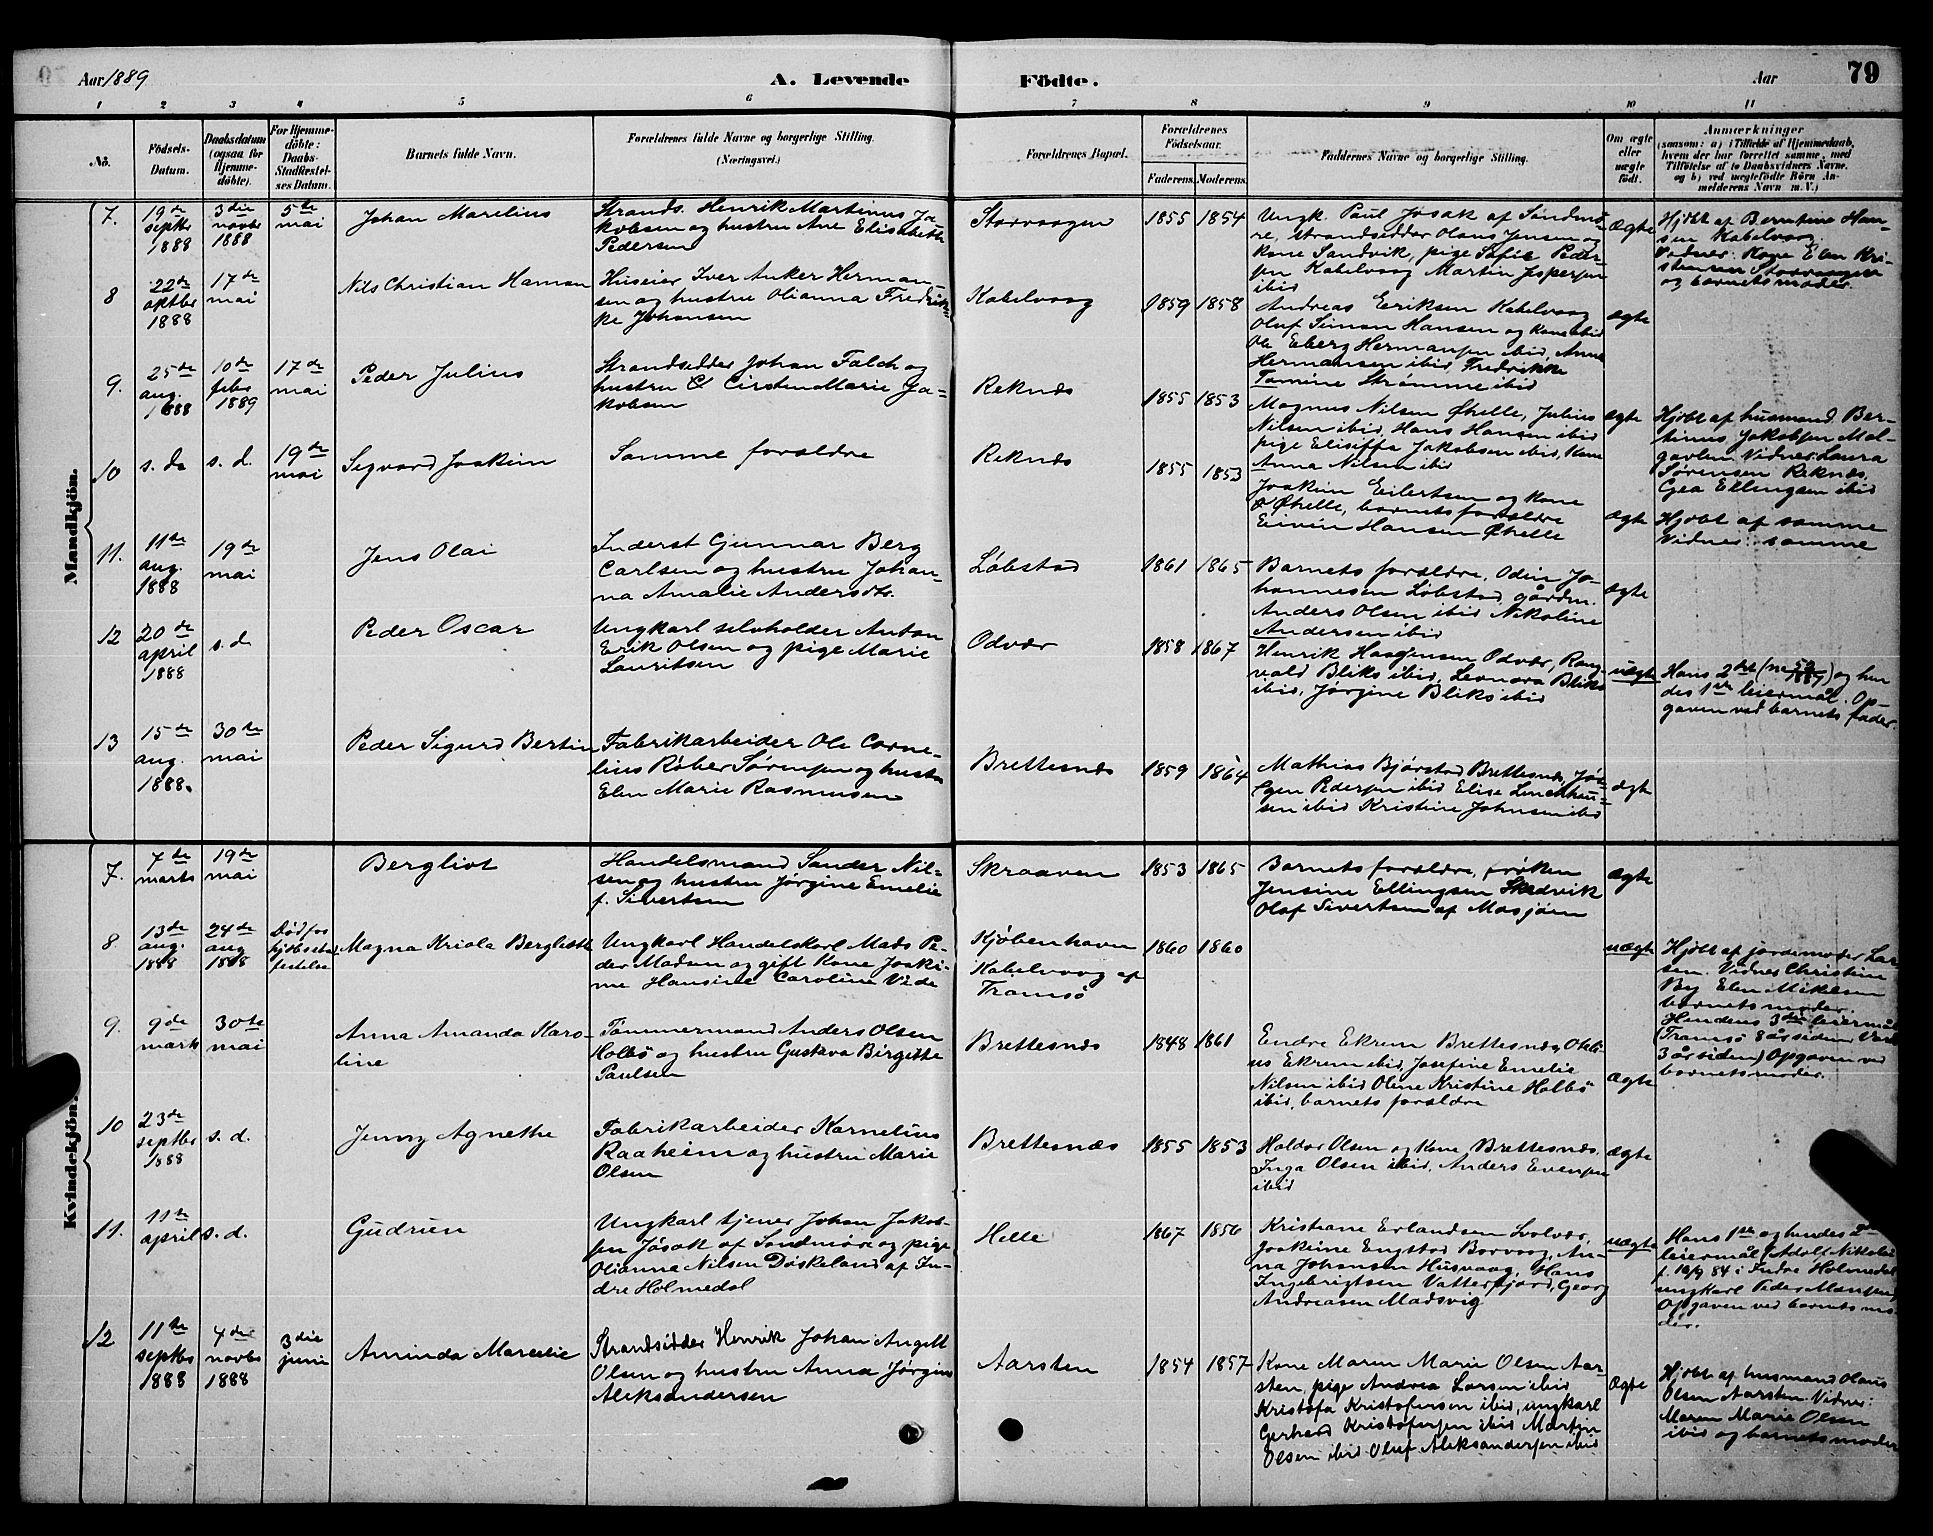 Aar 1889
A. Levende Födte.
Aar
79
1 2 3 4 5 6 7 8 9 10 11
No.
Födsels-
Datum.
Daabsdatum
(ogsaa for
Hjemme-
döbte).
For Hjemme-
döbte:
Daabs-
Stadfæstel-
ses Datum.
Barnets fulde Navn.
Forældrenes fulde Navne og borgerlige Stilling.
(Næringsvei.)
Forældrenes Bopæl.
Forældrenes
Födselsaar.
Faderens. Moderens.
Faddernes Navne og borgerlige Stilling.
Om ægte
eller
uægte
födt.
Anmærkninger
(saasom: a) i Tilfælde af Hjemmedaab,
hvem der har forrettet samme, med
Tilföielse af to Daabsvidners Navne,
og b) ved uægtefödte Börn An-
melderens Navn m. V.)
Mandkjön.
7.
19de
septbr
1888
3die
novbr
1888
5te
mai
Johan Marelius
Strands. Henrik Martinus Ja-
kobsen og hustru Ane Elisabeth
Pedersen
Storvaagen
1855 1854
Ungk. Paul Josak af Søndmö-
re, strandsidder Olaus Jensen og
kone Sandvik, pige Sofie Peder-
sen Kabelvaag Martin Jespersen
ibid
ægte
Hjdbt af Berntine Han-
sen Kabelvaag.
Vidner: Kone Elen Kri-
stensen Storvaagen
og barnets moder.
8
22de
oktbr
1888
17de
mai
Nils Christian Haman
Huseier Iver Anker Herman-
sen og hustru Olianna Fredrik-
ke Johansen
Kabelvaag
1859 1858
Andreas Eriksen Kabelvaag
Oluf Simon Hansen og kone ibid
Ole Eberg Hermansen ibid, Anna
Hermansen ibid Fredrikke
Tomine Strømme ibid
ægte
9.
25de
aug.
1888
10de
febr
1889
17de
mai
Peder Julius
Strandsidder Johan Falch og
hustru Cirsten Marie Ja-
kobsen
Reknæs
1855 1853
Magnus Nilsen Øhelle, Julius
Nilsen ibid, Hans Hansen ibid
pige Elisiffa Jakobsen ibid, Kone
Anna Nilsen ibid
ægte
Hjdbt af husmand Ber-
tinus Jakobsen Mol-
gavlen Vidner: Laura
Sørensen Reknæs,
Gea Ellingsen ibid
10
s. da
s. d.
19de
mai
Sigvard Joakim
Samme forældre
Reknæs
1855 1853
Joakim Eilertsen og kone
Øhelle, barnets forældre
Eivin Hansen Øhelle
ægte
Hjdbt af samme
Vidner: samme
11.
11te
aug.
1888
19de
mai
Jens Olai
Inderst Gunnar Berg
Carlsen og hustru Johan-
na Amalie Andersdtr.
Löbstad
1861 1865
Barnets forældre, Odin Jo-
hannesen Löbstad, gårdm.
Anders Olsen ibid Nikoline
Andersen ibid
ægte
12
20de
april
1888
s. d.
Peder Oscar
Ungkarl selvholder Anton
Erik Olsen og pige Marie
Lauritsen
Odvær
1858 1867
Henrik Haagensen Odvær, Rang-
vald Bliks ibid, Leonora Bliks
ibid, Jørgine Bliks ibid
uægte
Hans 2det (no 50/1887) og hen
des 1ste leiermål. Op-
gaven ved barnets fader.
13
15de
aug.
1888.
30te
mai
Peder Sigurd Bertin
Fabrikarbeider Ole Corne-
lius Röber Sörensen og hustru
Elen Marie Rasmussen
Brettesnæs
1859 1864
Mathias Bjørstad Brettesnæs, Jör-
gen Pedersen ibid Elise Linchhau-
sen ibid Kristine Johnsen ibid
ægte
Kvindekjön.
7.
7de
marts
19de
mai
Bergliot
Handelsmand Sander Nil-
sen og hustru Jørgine Emelie
f. Sivertsen
Skraaven
1853 1865
Barnets forældre, frøken
Jensine Ellingsen Skedvik
Olaf Sivertsen af Mosjøen
ægte
8
13de
aug.
1888
24de
aug
1888
Död før
hjdbs stad-
festelse
Magna Kriola Bergliotte
Ungkarl Handelskarl Mads Pe-
der Madsen og gift Kone Joaki-
me Hansine Caroline Vede
Kjöbenhavn
Kabelvaag af
Tromsö
1860 1860
uægte
Hjdbt af jordemoder Lar-
sen. Vidner Christine
By Elen Mikelsen
barnets moder.
Hendes 3die leiermål
(Tromsö 8 år siden,
3 år siden) Opgaven ved
barnets moder.
9.
9de
marts
30te
mai
Anna Amanda Karo-
line
Tömmermand Anders Olsen
Holbö og hustru Gustava Birgitte
Paulsen
Brettesnæs
1848 1861
Endre Ekrem Brettesnæs, Oteli-
us Ekrem ibid, Josefine Emelie
Nilsen ibid Oline Kristine Holbö
ibid, barnets forældre
ægte
10
23de
septbr
1888
s. d.
Jenny Agnethe
Fabrikarbeider Kornelius
Raaheim og hustru Marie
Olsen
Brettesnæs
1855 1853
Haldor Olsen og Kone Brettesnæs,
Inga Olsen ibid, Anders Evensen
ibid
ægte
11.
11te
april
s. d.
Gudrun
Ungkarl tjener Johan Jakob-
sen Jösok af Søndmöre og pige
Olianna Nilsen Döskeland af In-
dre Holmedal
Helle
1867 1856
Kristiane Erlandsen Svolvær,
Joakime Engstad Borvaag, An-
na Johansen Husvaag, Hans
Ingebrigtsen Vatterfjord, Georg
Andreasen Madsvig
uægte
Hans 1ste og hendes 2det
leiermål (Adolf Nikkolai
f. 10/9 84 i Indre Holmedal
ungkarl Peder Monsen)
Opgaven ved barnets mo-
der.
12
11te
septbr
1888
4de
novbr
1888
3die
juni
Aminda Marcelie
Strandsidder Henrik Johan Angell
Olsen og hustru Anna Jørgine
Aleksandersen
Aarsten
1854 1857
Kone Maren Marie Olsen Aar-
sten, pige Andrea Larsen ibid
Kristofa Kristofersen ibid, ungkarl
Gerhard Kristofersen ibid Martin
Olsen ibid Oluf Aleksandersen ibid
ægte
Hjdbt af husmand Olaus
Olsen Aarsten Vidner:
Maren Marie Olsen
ibid og barnets moder